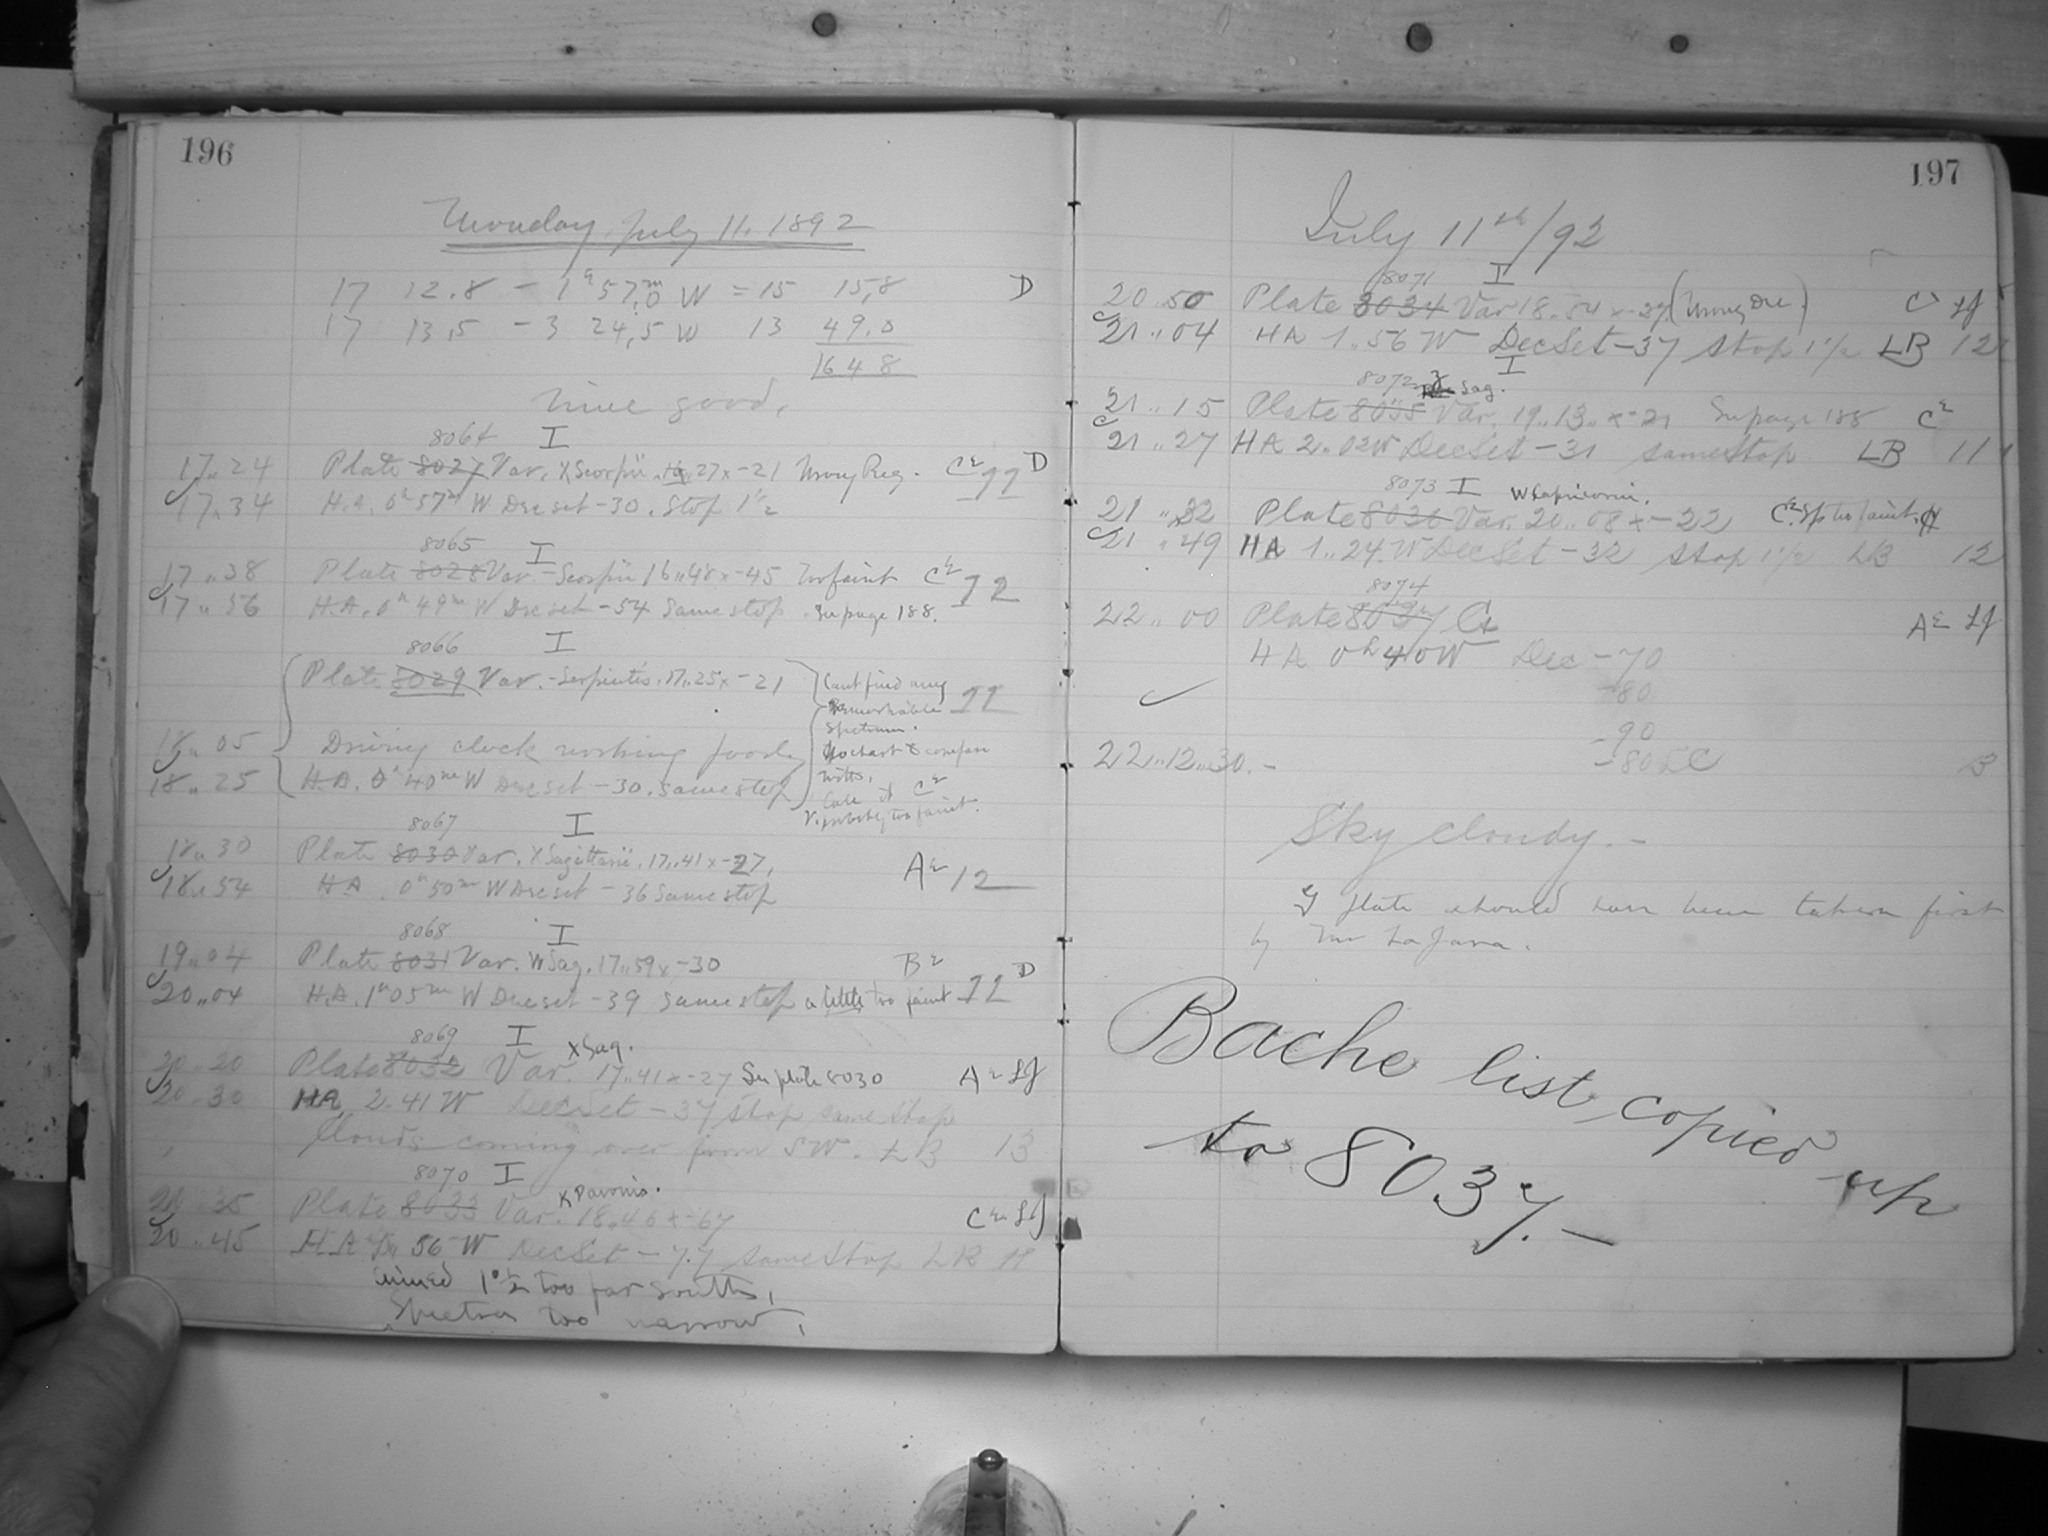 196
Monday July 11. 1892
17 12.8 - 1h 57.0m W = 15 15.8 D
17 13.5 - 3 24.5 W 13 49.0
1648
8064 I
17..24 Plate 8027 Var. X Scorpii. 16..27 x -21 Wrong Reg. C2 11 D
17..34 H.A. 0h 57m W Dec set -30. Stop 1 1/2
8065 I
17..38 Plate 8028 Var. - Scorpii 16..48 x -45 Too faint C2 12
17..56 H.A. 0h 49m W Dec set -54 Same stop. See page 188.
8066 I
Plate 8029 Var. - Serpentis. 17..25 x -21 Cant find any 11
Remarkable
Spectrum.
18..05 Driving clock working good No chart to compare
with.
18..25 H.A. 0h 40m W Dec set -30. Same stop Calc it C2
probably too faint.
8067 I
18..30 Plate 8030 Var. X Sagittarii. 17..41 x -27.
18..54 HA. 0h 50m W Dec set -36 Same stop A2 12
8068 I
19..04 Plate 8031 Var. W Sag. 17..59 x -30 B2
20..04 H.A. 1h 05m W Dec set -39 same stop a little too faint 11 D
8069 I X Sag.
20..20 Plate 8032 Var. 17..41 x -27 See plate 8030 A2 LJ
20..30 HA 2..41 W Dec Set -37 stop same stop
Clouds coming over from SW. LB 13
8070 I K Pavonis.
20..35 Plate 8033 Var. 18..46 x -67 C2 LJ
20..45 HA 56 W Dec Set -77 same stop LB
aimed 1° 1/2 too far South,
Spectra too narrow,
197
July 11th/92
8071 I
20..50 Plate 8034 Var 18..54 x -27 (Wrong Dec.) C LJ
21..04 HA 1..56 W Dec Set -37 stop 1 1/2 LB 12
I
8072 Z Sag.
21..15 Plate 8035 Var. 19..13.. x -21 See page 188 C2
21..27 HA 2..02 W Dec Set -31 same stop LB 11
8073 I W Capricorni.
21..32 Plate 8036 Var. 20..08 x -22 C2 Sp too faint.
21..49 HA 1..24 W Dec Set -32 stop 1 1/2 LB 12
8074
22..00 Plate 8037 G A2 LJ
HA 0h 40 W Dec -70
-80
-90
22..12..30.- -80 LC B
Sky cloudy.-
G plate should have been taken first
by Mr LaJara.
Bache list copied up
to 8037.-